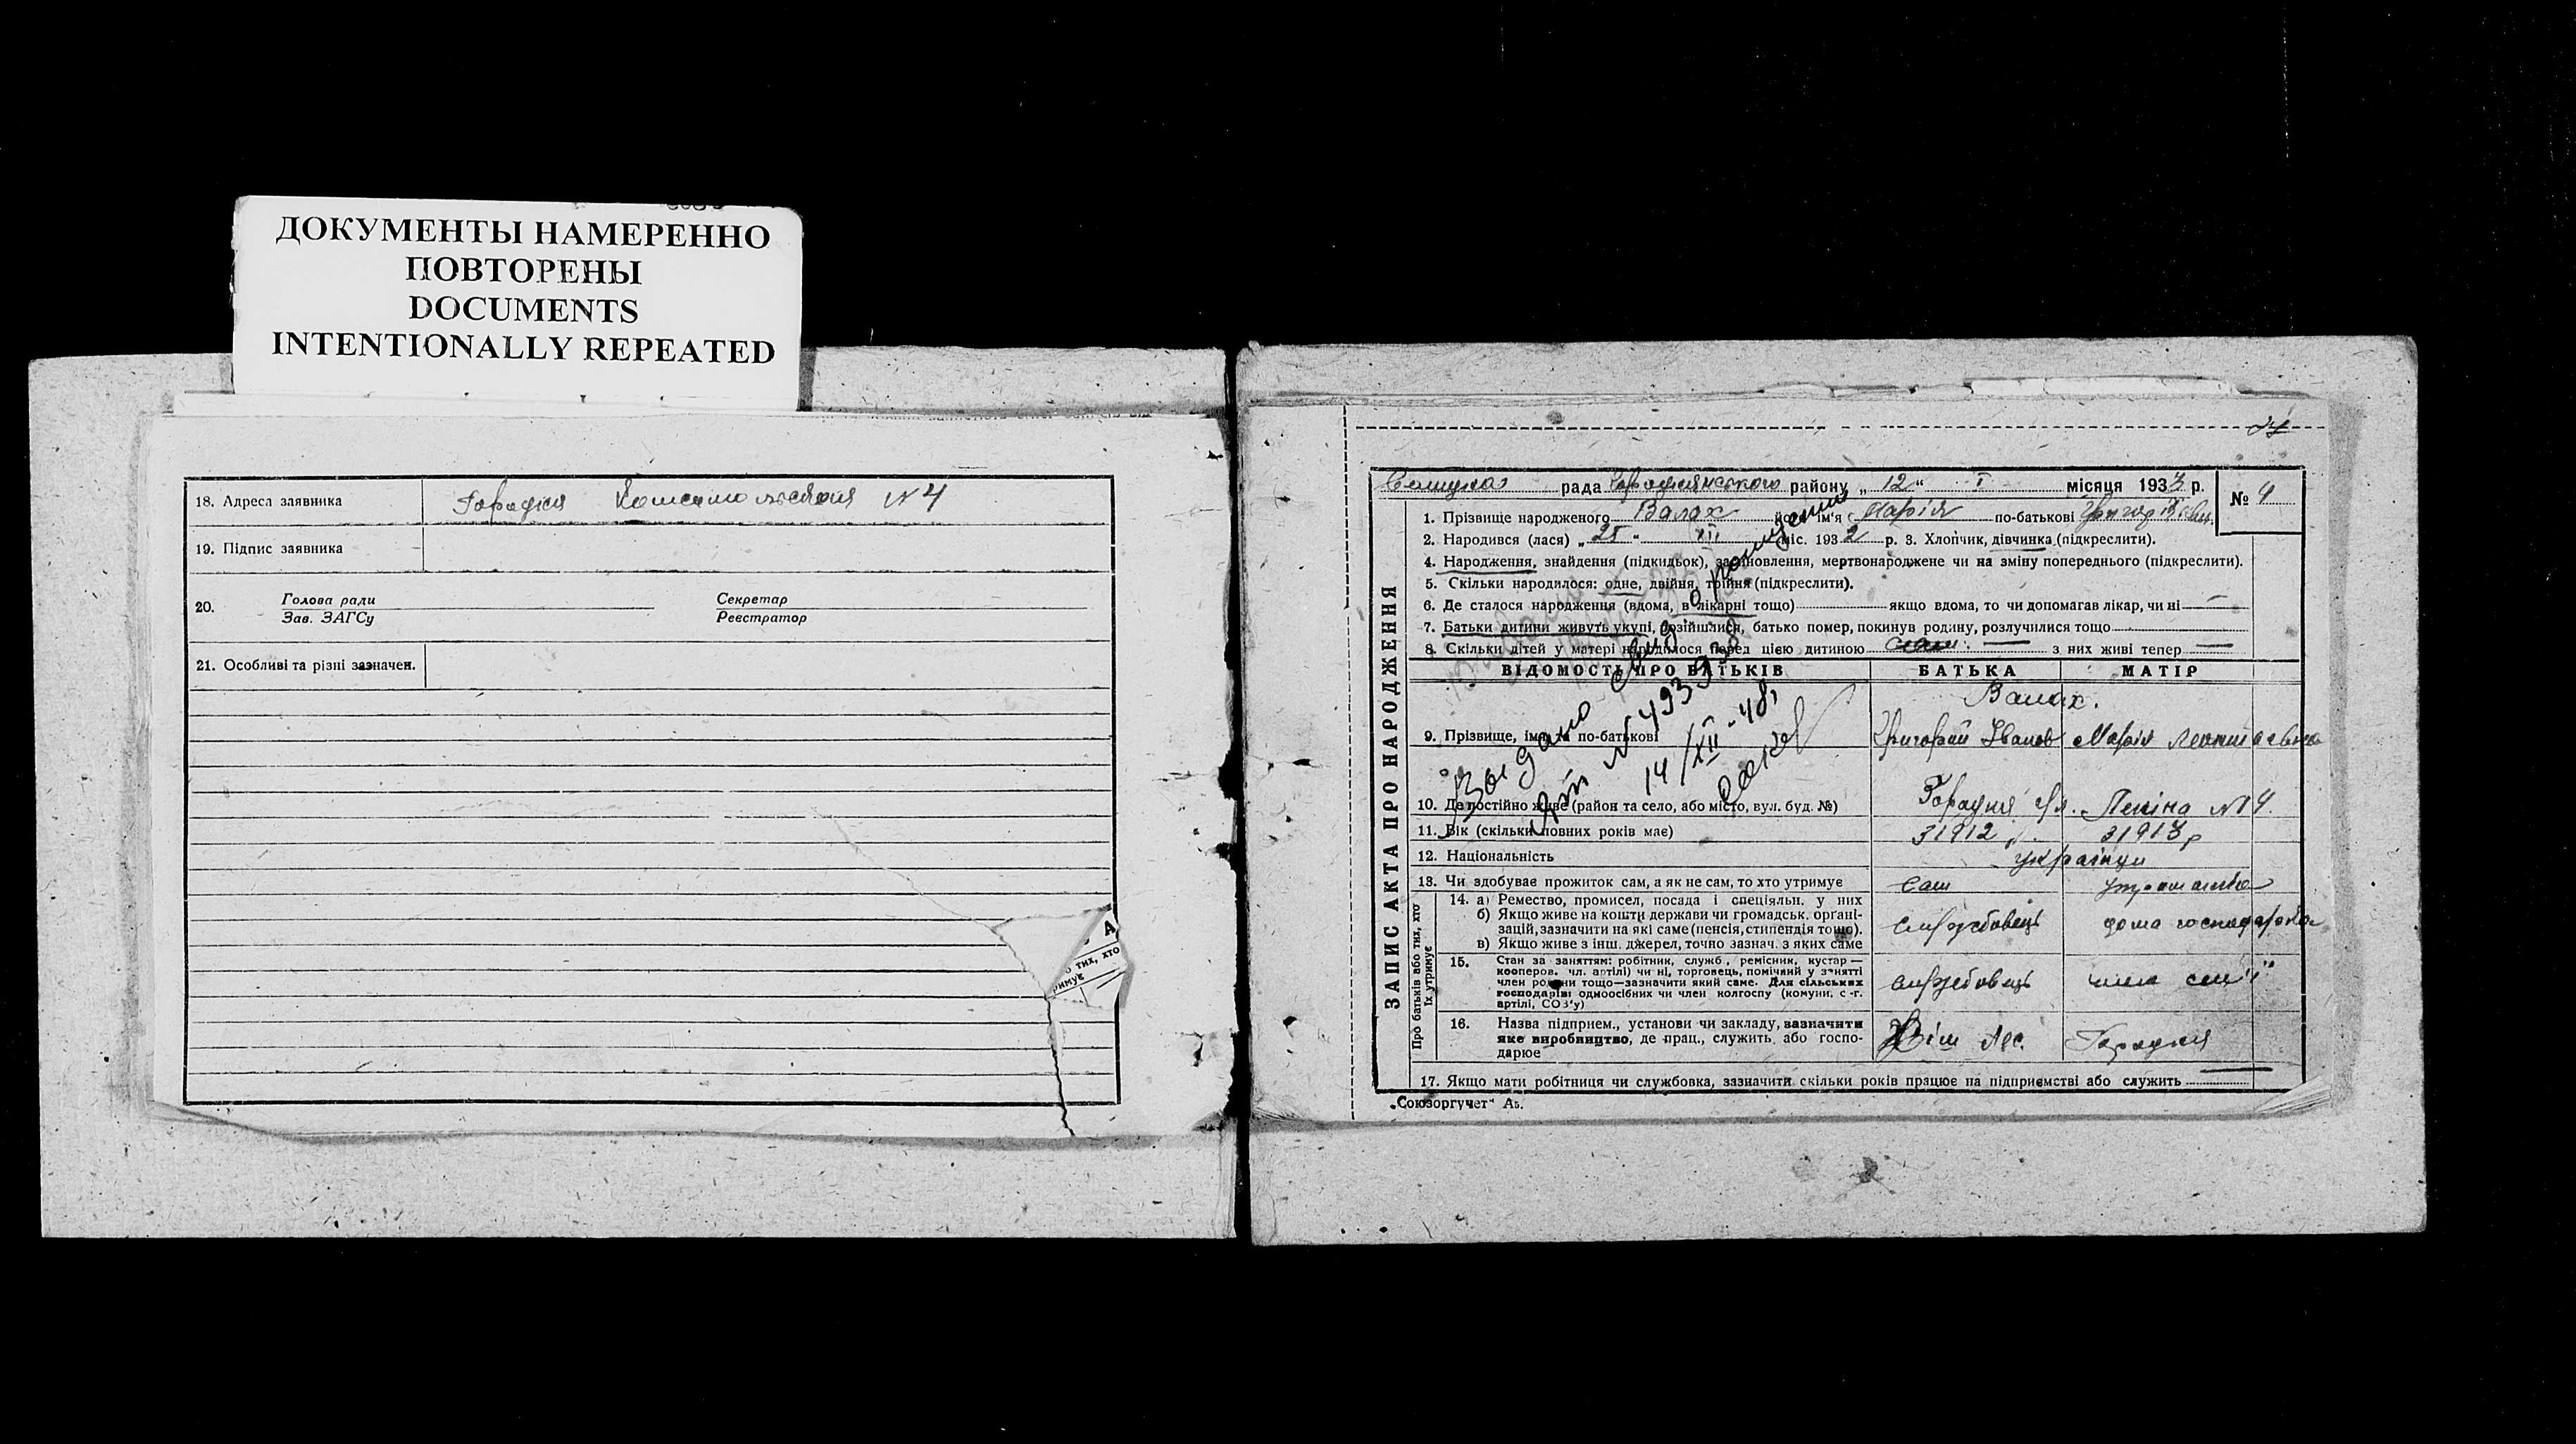 ДОКУМЕНТЫ НАМЕРЕННО
ПОВТОРЕНЫ
DOCUMENTS
INTENTIONALLY REPEATED
18. Адреса заявника Городня N 4
19. Підпис заявника
20. Голова ради Секретар
Зав. ЗАГСу Реєстратор
21. Особливі та різні зазначен.
А
о тих, хто
римує
рада Городнянського району „ 12 “ I місяця 1933 р.
№ 4
ЗАПИС АКТА ПРО НАРОДЖЕННЯ
1. Прізвище народженого Валах його ім'я Марія по-батькові
2. Народився (лася) „ 25 “ XII міс. 1932 р. 3. Хлопчик, дівчинка (підкреслити).
4. Народження, знайдення (підкидьок), задіновлення, мертвонароджене чи на зміну попереднього (підкреслити).
5. Скільки народилося: одне, двійня, трійня (підкреслити).
6. Де сталося народження (вдома, в лікарні тощо) якщо вдома, то чи допомагав лікар, чи ні —
7. Батьки дитини живуть укупі, розійшлися, батько помер, покинув родину, розлучилися тощо
8. Скільки дітей у матері народилося перед цією дитиною — з них живі тепер —
ВІДОМОСТЬ ПРО БАТЬКІВ БАТЬКА МАТІР
Валах.
9. Прізвище, ім'я та по-батькові Григорий Іванов Марія
10. Де постійно живе (район та село, або місто, вул. буд. №) Городня Леніна N 4
11. Вік (скільки повних років має) 31912 31913 р
12. Національність українци
13. Чи здобуває прожиток сам, а як не сам, то хто утримує сам
Про батьків або тих, хто їх утримує
14. а) Ремество, промисел, посада і спеціяльн. у них
б) Якщо живе на кошти держави чи громадськ. органі-
зацій, зазначити на які саме (пенсія, стипендія тощо).
в) Якщо живе з інш. джерел, точно зазнач. з яких саме
службовець дома господарка
15. Стан за заняттям: робітник, служб., ремісник, кустар —
кооперов. чл. артілі) чи ні, торговець, помічний у занятті
член родини тощо—зазначити який саме. Для сільських
господарів: одноосібних чи член колгоспу (комуни, с-г.
артілі, СОЗ'у)
службовець член сем'ї
16. Назва підприєм., установи чи закладу, зазначити
яке виробництво, де прац., служить або госпо-
дарює
Городня
17. Якщо мати робітниця чи службовка, зазначити скільки років працює на підприємстві або служить —
„Союзоргучет“
Выдано свид. о рождении
14/XII-48,